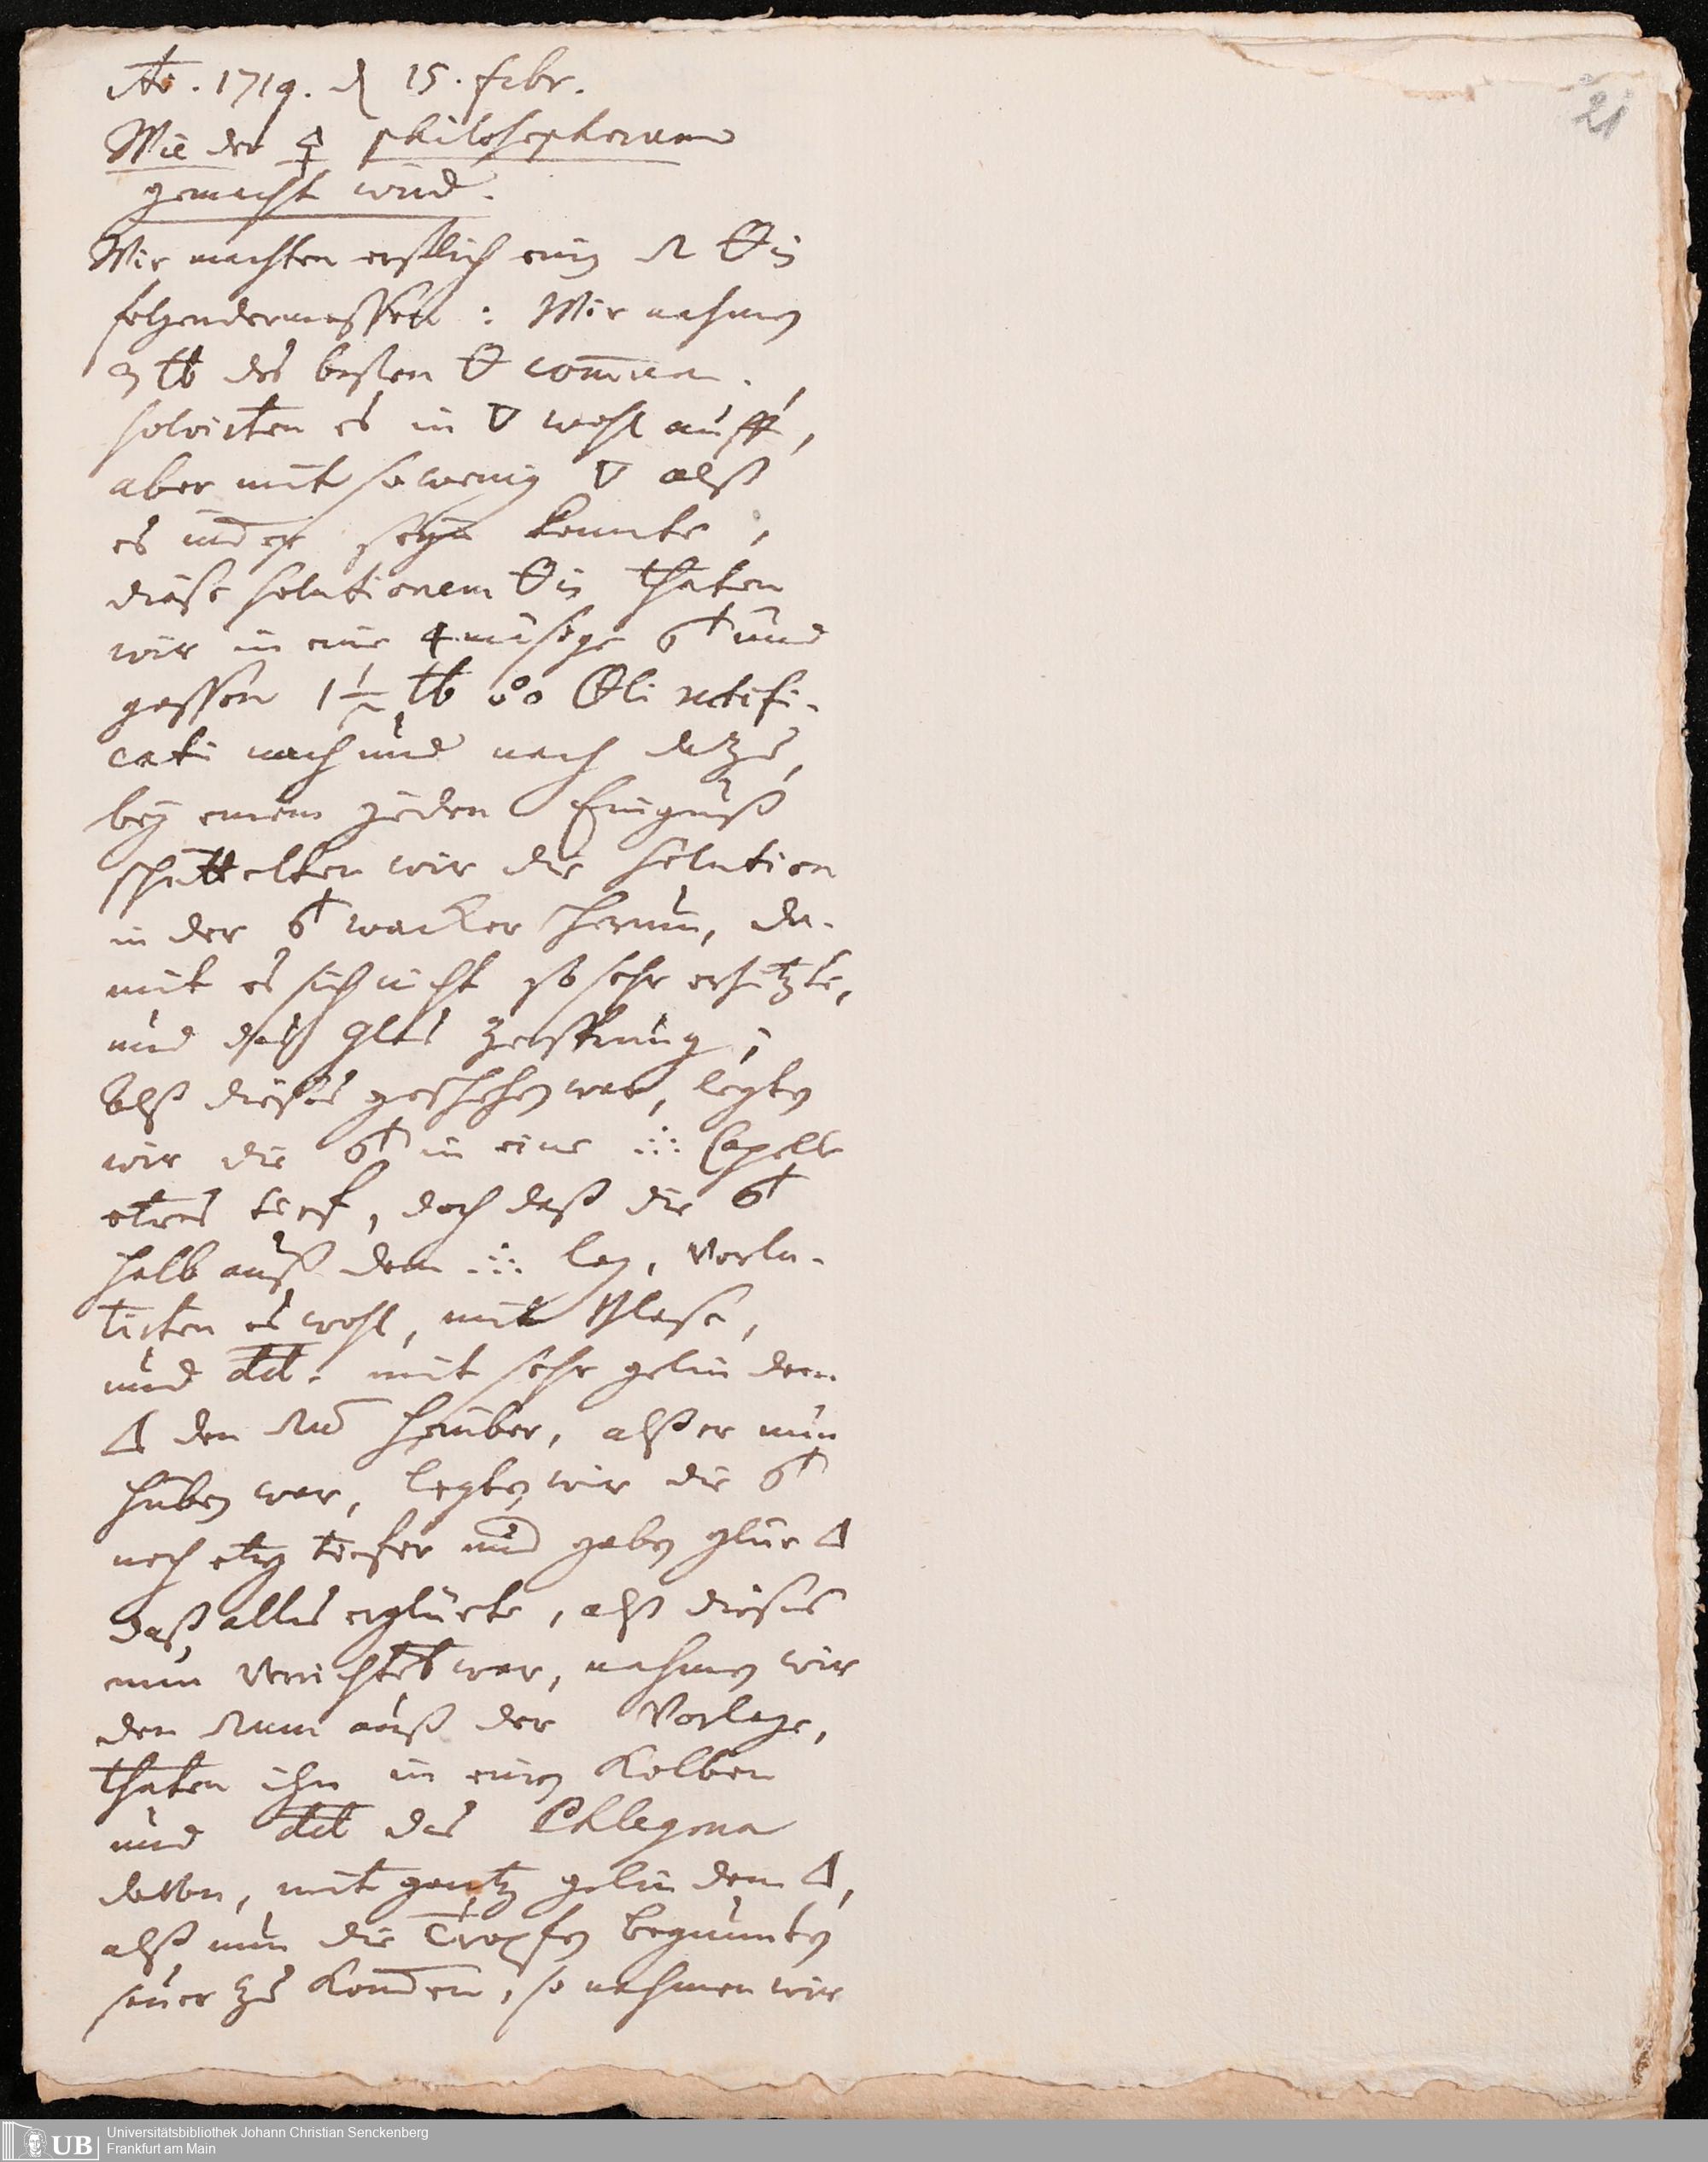 Ao. 1719. d 15. Febr.
Wie der 🜍 philosophorum
gemacht wird.
Wir machten erstlich ein Θis
folgendermassen: Wir nahmen
3 ℔ des besten Θ commun.
solvirten es in 🜄 wohl auff,
aber mit so wenig 🜄 alß
es immer seyn konnte,
diese solutionem Θis thaten
wir in eine 4 mäßige und
gossen 1½ ℔ Oli rectifi-
cati nach und nach dazu,
bey einem jeden Einguß
schüttelten wir die Solution
in der wacker herum, da-
mit es sich nicht so sehr erhitzte,
und das Glas zersprung;
Alß dieses geschehen war, legten
wir die in eine ∴ Capelle
etwas tief, doch daß die
halb auß dem ∴ lag, Verlu-
tirten es wohl, mit Blase,
und dst. mit sehr gelindem
🜂 den herüber, alß er nun
hüben war, legten wir die
noch etwas tiefer und gaben glüe 🜂
daß alles erglüete, alß dieses
nun Verrichtet war, nahmen wir
den auß der Vorlage,
thaten ihn in einen Kolben
und dst das Phlegma
davon, mit gantz gelindem 🜂,
alß nun die Tropfen begunnten
sauer zu kommen, so nahmen wir
21
UB
Universitätsbibliothek Johann Christian Senckenberg
Frankfurt am Main